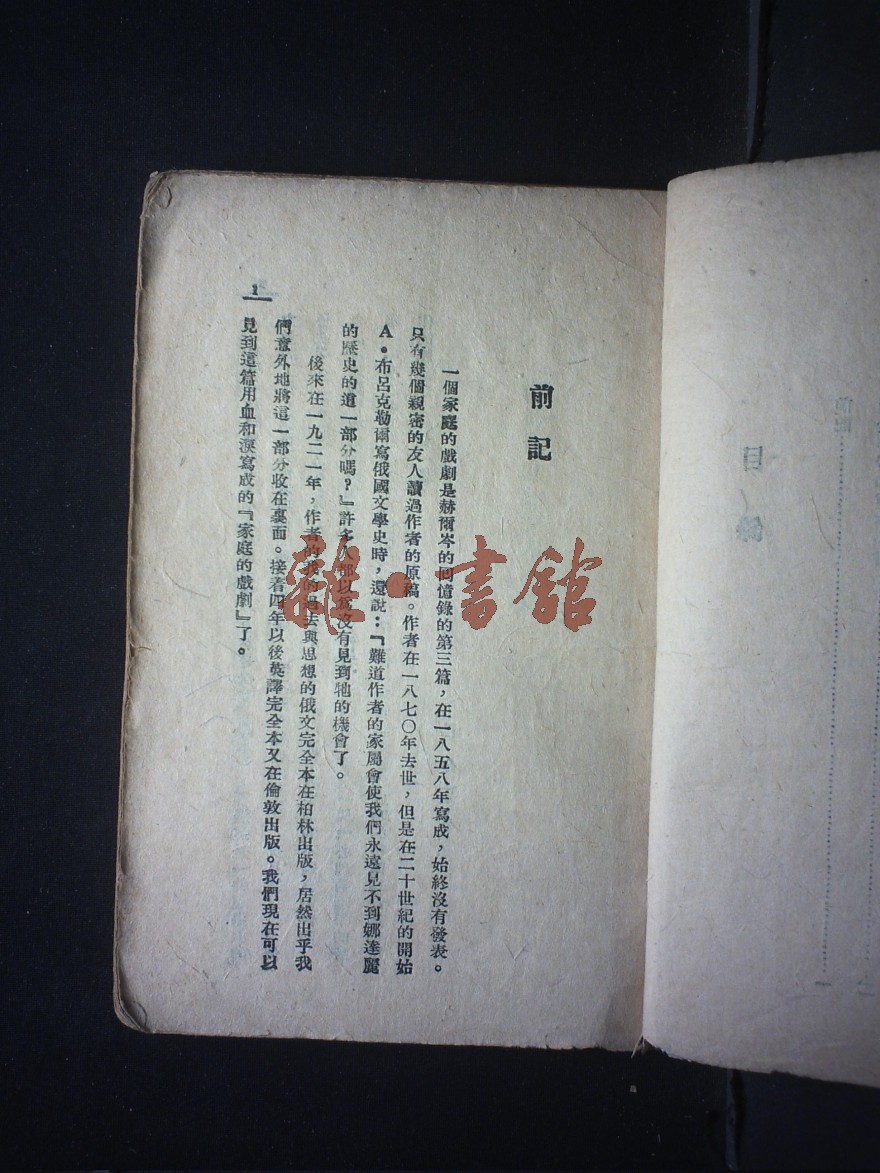 目 錄
前記
前 記
一個家庭的戲劇是赫爾岑的回憶錄的第三篇，在一八五八年寫成，始終沒有發表。
只有幾個親密的友人讀過作者的原稿。作者在一八七〇年去世，但是在二十世紀的開始
A·布呂克勒爾寫俄國文學史時，還說：『難道作者的家屬會使我們永遠見不到娜達麗
的歷史的這一部分嗎？』許多人都以爲沒有見到牠的機會了。
後來在一九二一年，作者的我的過去與思想的俄文完全本在柏林出版，居然出乎我
們意外地將這一部分收在裏面。接着四年以後英譯完全本又在倫敦出版。我們現在可以
見到這篇用血和淚寫成的『家庭的戲劇』了。
1
雜·書館